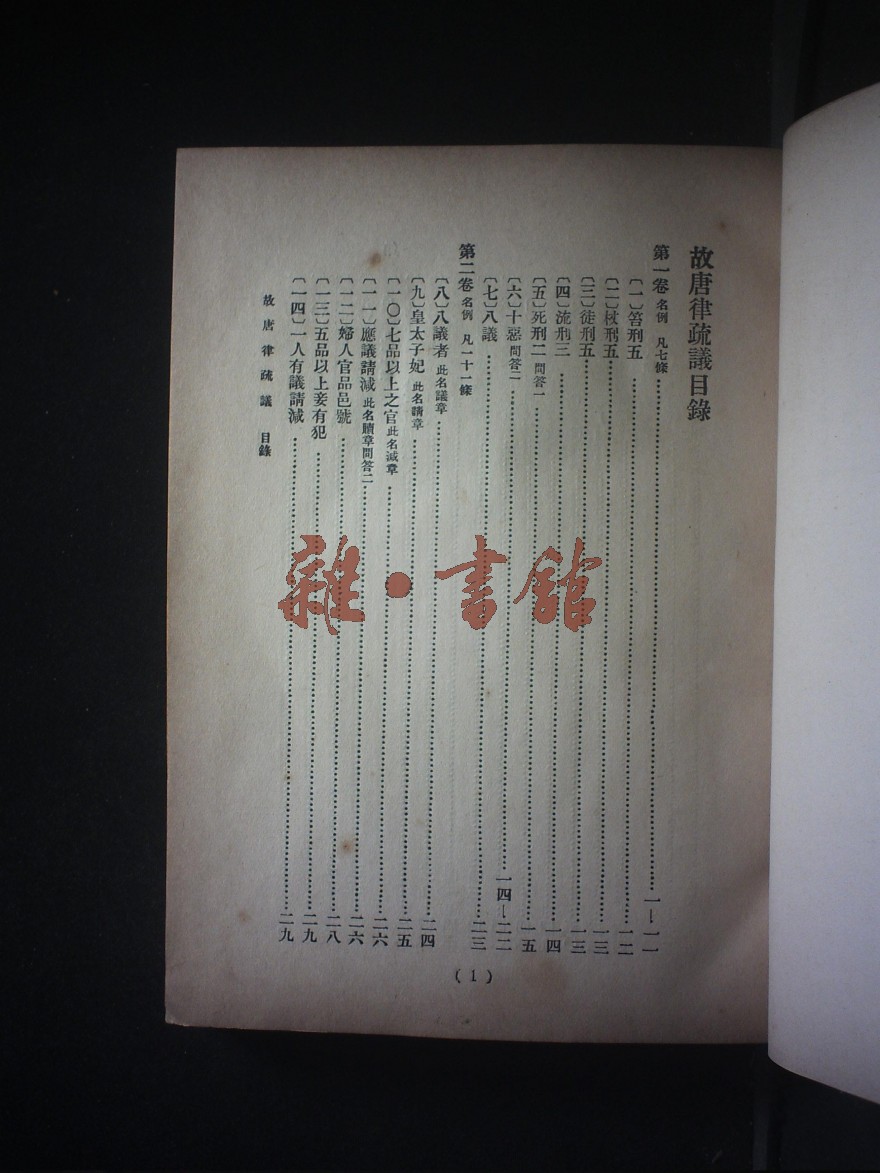 故唐律疏議目錄
第一卷 名例 凡七條……一—一一
〔一〕笞刑五……一二
〔二〕杖刑五……一三
〔三〕徒刑五……一三
〔四〕流刑三……一四
〔五〕死刑二 問答一……一五
〔六〕十惡 問答二……一四—二二
〔七〕八議……二三
第二卷 名例 凡一十一條
〔八〕八議者 此名議章……二四
〔九〕皇太子妃 此名請章……二五
〔一〇〕七品以上之官 此名減章……二六
〔一一〕應議請減 此名贖章問答二……二六
〔一二〕婦人官品邑號……二八
〔一三〕五品以上妾有犯……二九
〔一四〕一人有議請減……二九
故唐律疏議 目錄
(1)
雜·書館